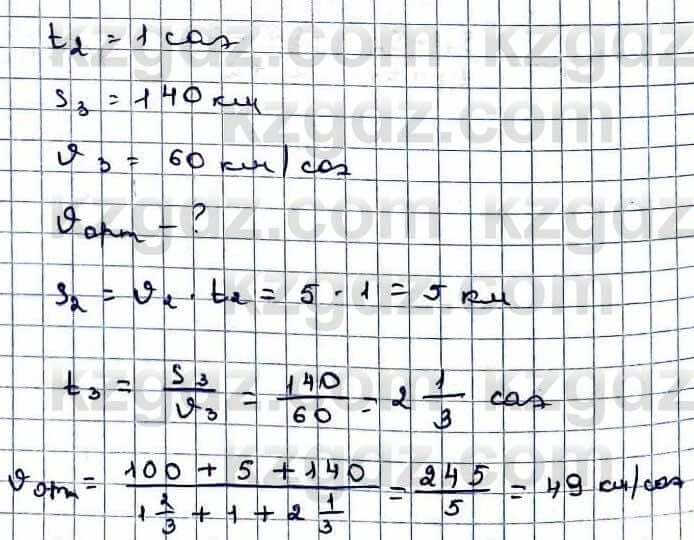 t₂ = 1 саг
S₃ = 140 км
ϑ₃ = 60 км/саг
ϑорт – ?
S₂ = ϑ₂ · t₂ = 5 · 1 = 5 км
t₃ = S₃/ϑ₃ = 140/60 = 2 1/3 саг
ϑорт = (100 + 5 + 140)/(1 2/3 + 1 + 2 1/3) = 245/5 = 49 км/саг
kzgdz.com